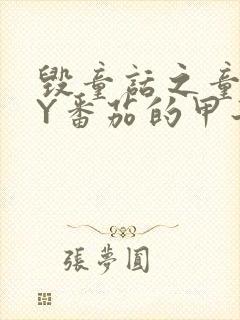 毁童話之童
Y番茄的甲
張夢圓